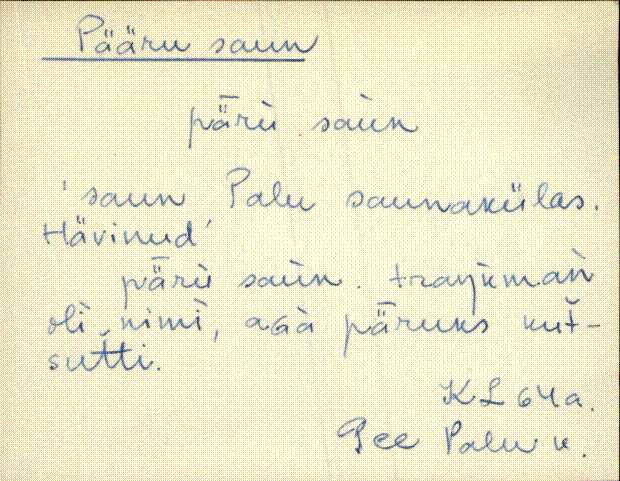 Pääru saun
pǟru saùn
'saun Palu saunakülas.
Hävinud'
pǟru saùn. traŋkmaǹ
oli nimi, aGà pǟruks kut̀-
sutti.
KL 64a.
Pee Palu k.